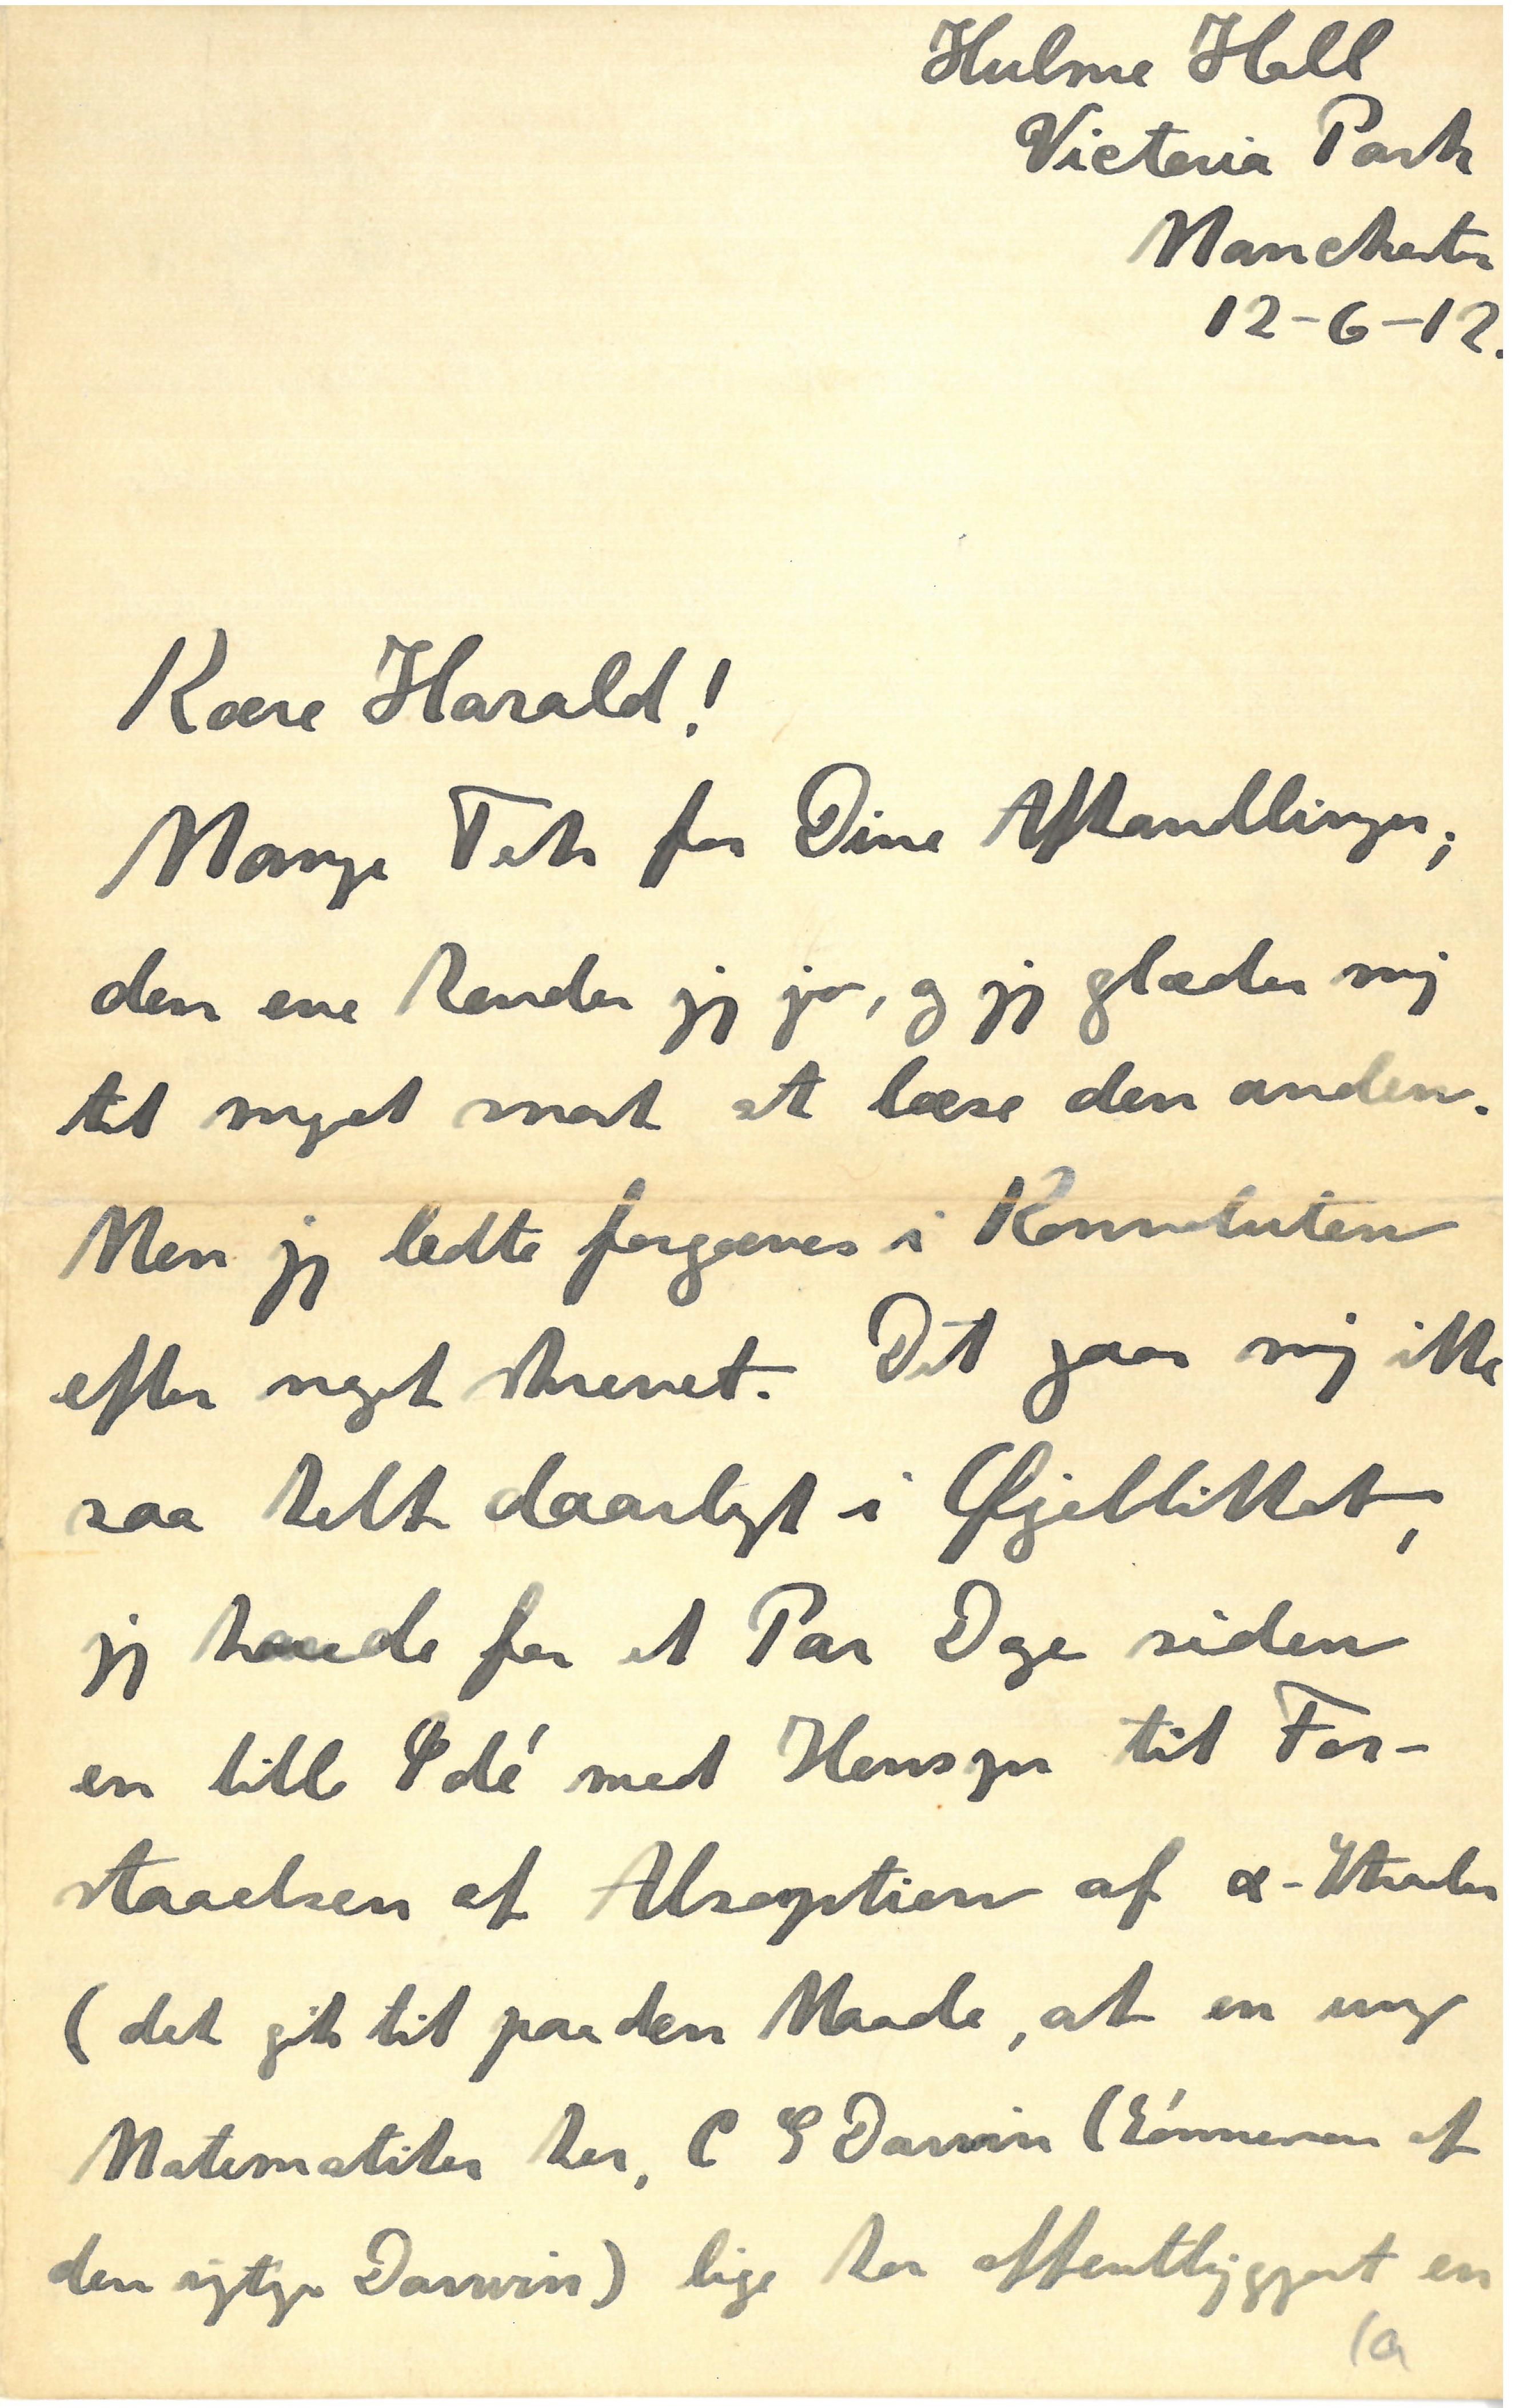 Hulme Hall
Victoria Park
Manchester
12-6-12.
Kære Harald!
Mange Tak for Dine Afhandlinger;
den ene kender jeg jo, og jeg glæder mig
til meget snart at læse den anden.
Men jeg ledte forgæves i Konvoluten
efter noget skrevet. Det gaar mig ikke
saa helt daarligt i Øjeblikket,
jeg havde for et Par Dage siden
en lille Idé med Hensyn til For-
staaelsen af Absorption af α-Straaler
(det gik til paa den Maade, at en ung
Matematiker her, C G Darwin (Sónnesøn af
den rigtige Darwin) lige har offentliggjort en
1a